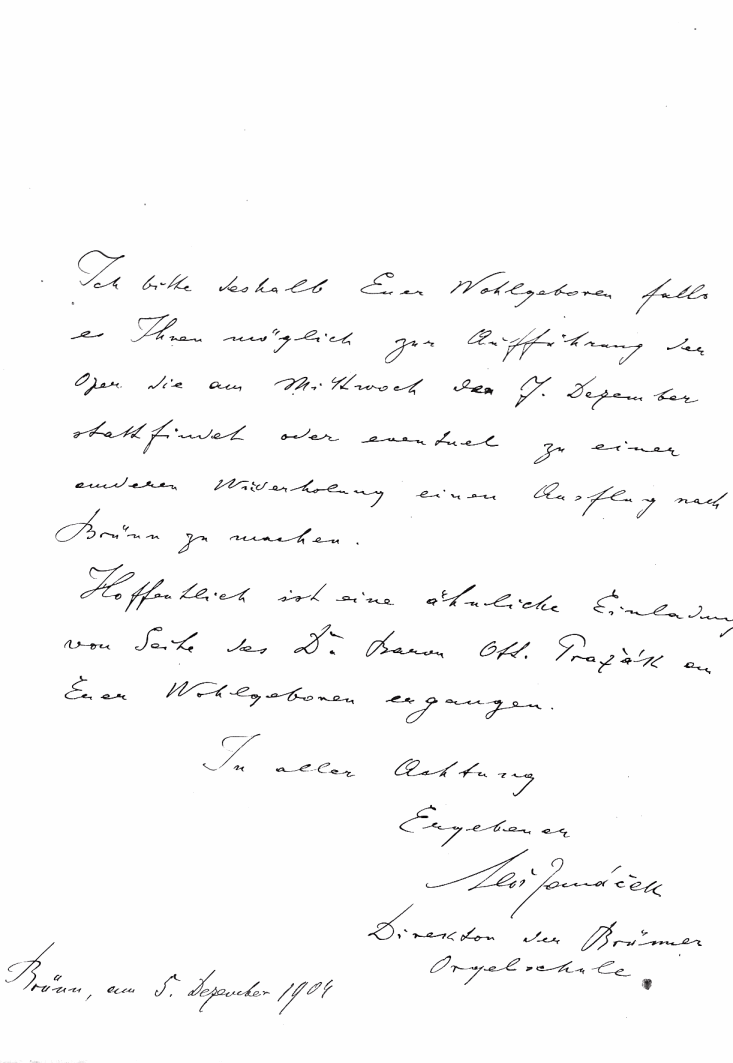 Ich bitte deshalb Euer Wohlgeboren falls
es Ihnen möglich zur Aufführung der
Oper die am Mittwoch den 7. Dezember
stattfindet oder eventuel zu einer
anderen Wiederholung einen Ausflug nach
Brünn zu machen.
Hoffentlich ist eine ähnliche Einladung
von Seite des Dr. Baron Ott. Pražák an
Euer Wohlgeboren ergangen.
In aller Achtung
Ergebener
Leoš Janáček
Direktor der Brünner
Orgelschule.
Brünn, am 5. Dezember 1904